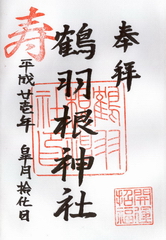 奉拝
鶴羽根神社
寿
平成廿壱年
皐月拾弐日
開運
招福